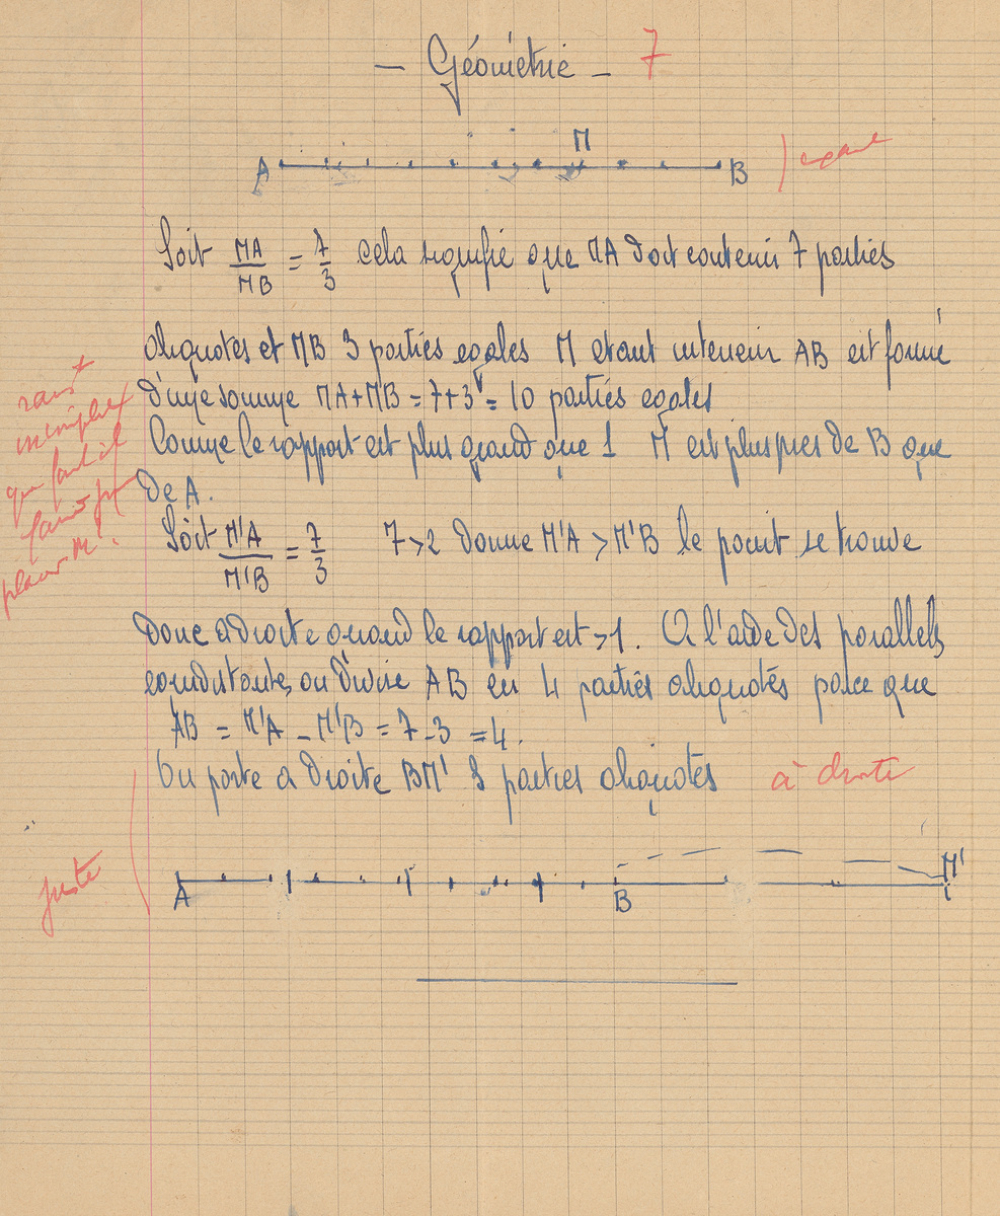 — Géométrie — 7
M
A B
Soit MA/MB = 7/3 cela signifie que MA doit contenir 7 parties
aliquotes et MB 3 parties egales M etant interieur AB est formé
d'une somme MA+MB = 7+3 = 10 parties egales
Comme le rapport est plus grand que 1 M est plus pres de B que
de A.
rais^t
incomplet
que faut il
faire pr
placer M?
Soit M'A/M'B = 7/3 7>2 donne M'A > M'B le point se trouve
donc a droite quand le rapport est >1. A l'aide des parallels
equidistantes on divise AB en 4 parties aliquotés parce que
AB = M'A - M'B = 7-3 = 4.
On porte a droite BM' 3 parties aliquotés à droite
juste
A B M'